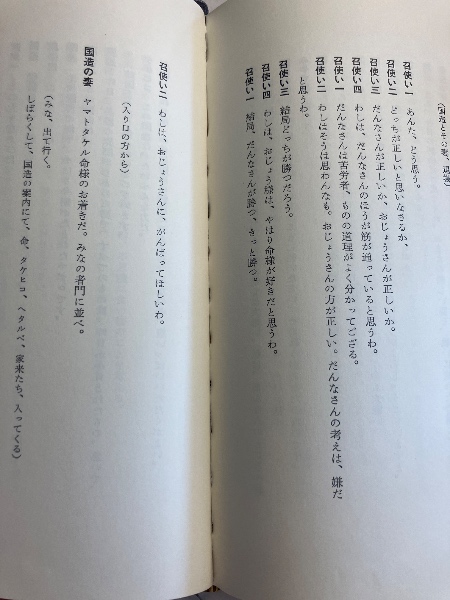 （国造とその妻、退場）
召使い一　あんた、どう思う。
召使い二　どっちが正しいと思いなさるか、
召使い三　だんなさんが正しいか、おじょうさんが正しいか。
召使い四　わしは、だんなさんのほうが筋が通っていると思うわ。
召使い一　だんなさんは苦労者、ものの道理がよく分かってござる。
召使い二　わしはそうは思わんなも。おじょうさんの方が正しい。だんなさんの考えは、嫌だ
と思うわ。
召使い三　結局どっちが勝つだろう。
召使い四　わしは、おじょう様は、やはり命様が好きだと思うわ。
召使い一　結局、だんなさんが勝つ、きっと勝つ。
召使い二　わしは、おじょうさんに、がんばってほしいわ。
（入り口の方から）
国造の妻　ヤマトタケル命様のお着きだ。みなの者門に並べ。
（みな、出て行く。
しばらくして、国造の案内にて、命、タケヒコ、ヘタルベ、家来たち、入ってくる）